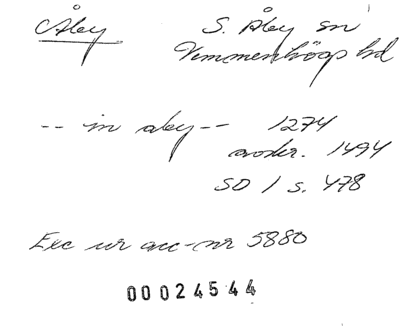 Åby S. Åby sn
Vemmenhögs hd
-- in aby -- 1274
avskr. 1494
SD 1 s. 478
Exc ur acc-nr 5880
00024544